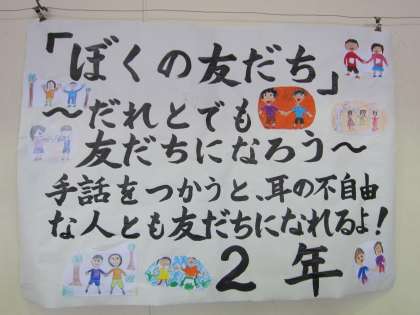 「ぼくの友だち」
～だれとでも
友だちになろう～
手話をつかうと、耳の不自由
な人とも友だちになれるよ！
2年